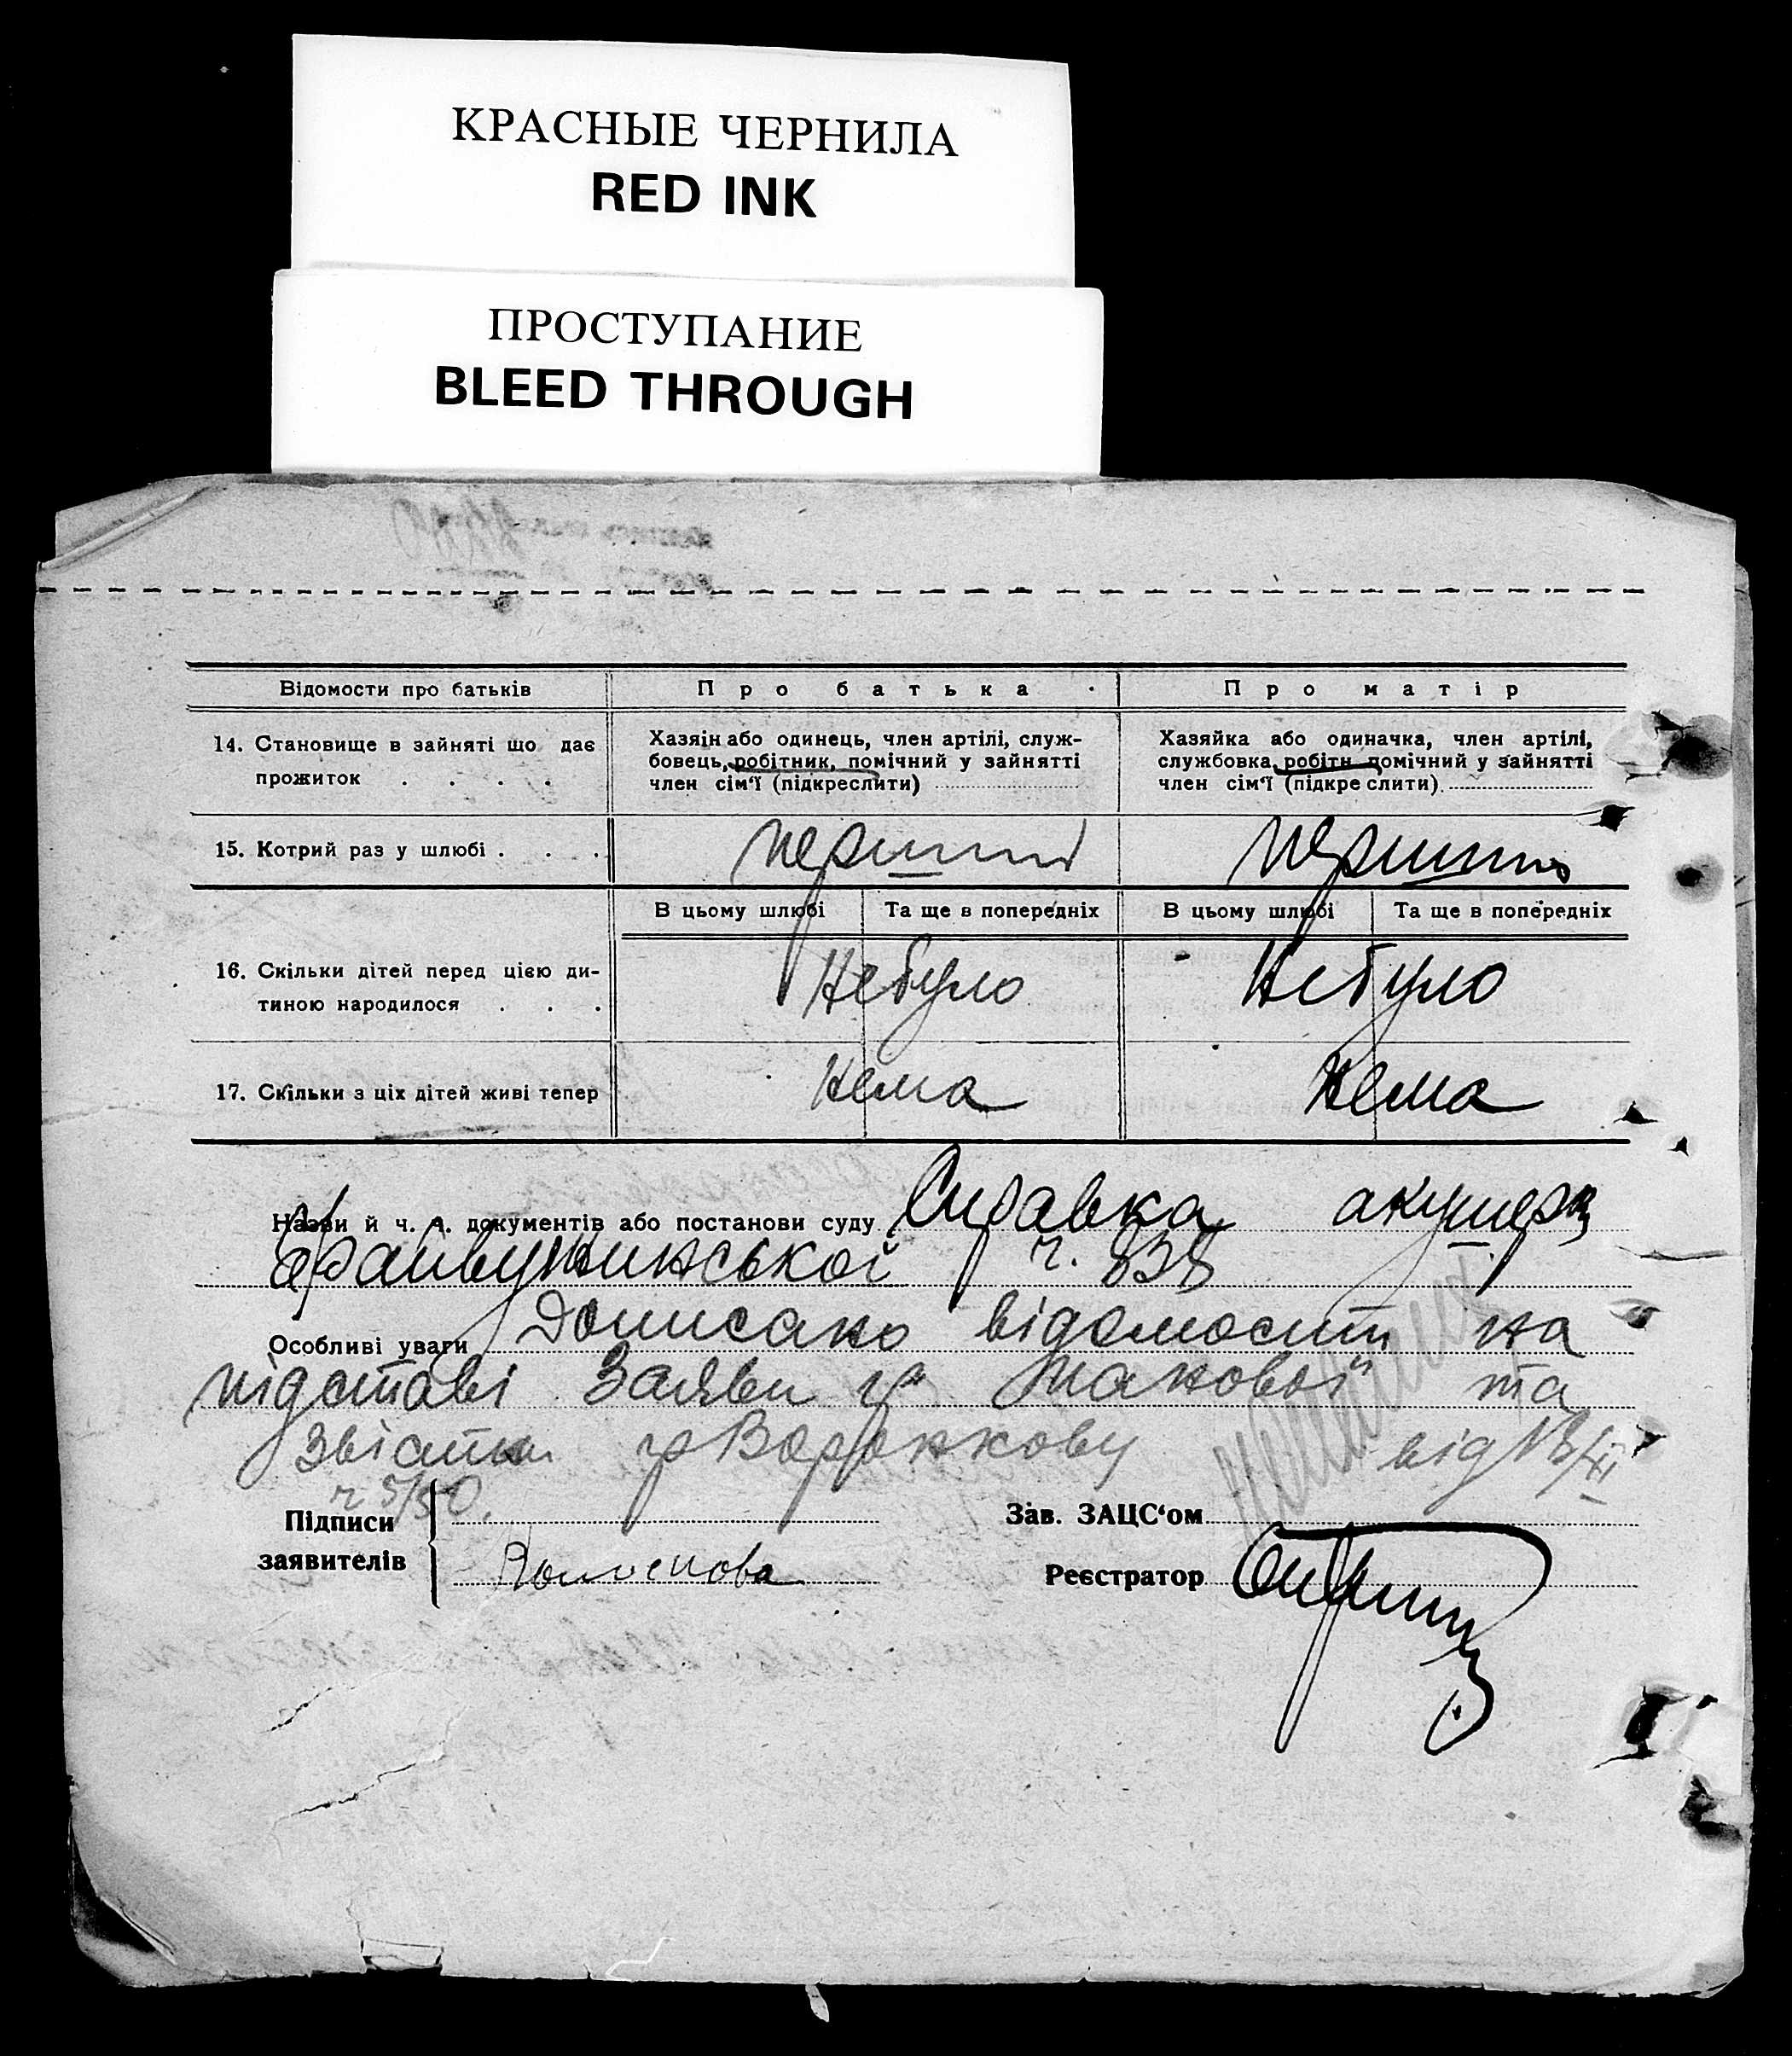 КРАСНЫЕ ЧЕРНИЛА
RED INK
ПРОСТУПАНИЕ
BLEED THROUGH
Відомости про батьків
Про батька
Про матір
14. Становище в зайняті що дає
прожиток . . . .
Хазяїн або одинець, член артілі, служ-
бовець, робітник, помічний у зайнятті
член сім'ї (підкреслити)
Хазяйка або одиначка, член артілі,
службовка, робітн помічний у зайнятті
член сім'ї (підкреслити)
15. Котрий раз у шлюбі . . .
перший
перший
В цьому шлюбі
Та ще в попередніх
В цьому шлюбі
Та ще в попередніх
16. Скільки дітей перед цією ди-
тиною народилося . . .
Небуло
Небуло
17. Скільки з ціх дітей живі тепер
Нема
Нема
Назви й ч. ч. документів або постанови суду Справка акушерк
ч. 838
Особливі уваги Дописано відомости на
підставі Заяви гр та
Звістки гр від 13/XI
Підписи
заявителів
Зав. ЗАЦС'ом
Реєстратор